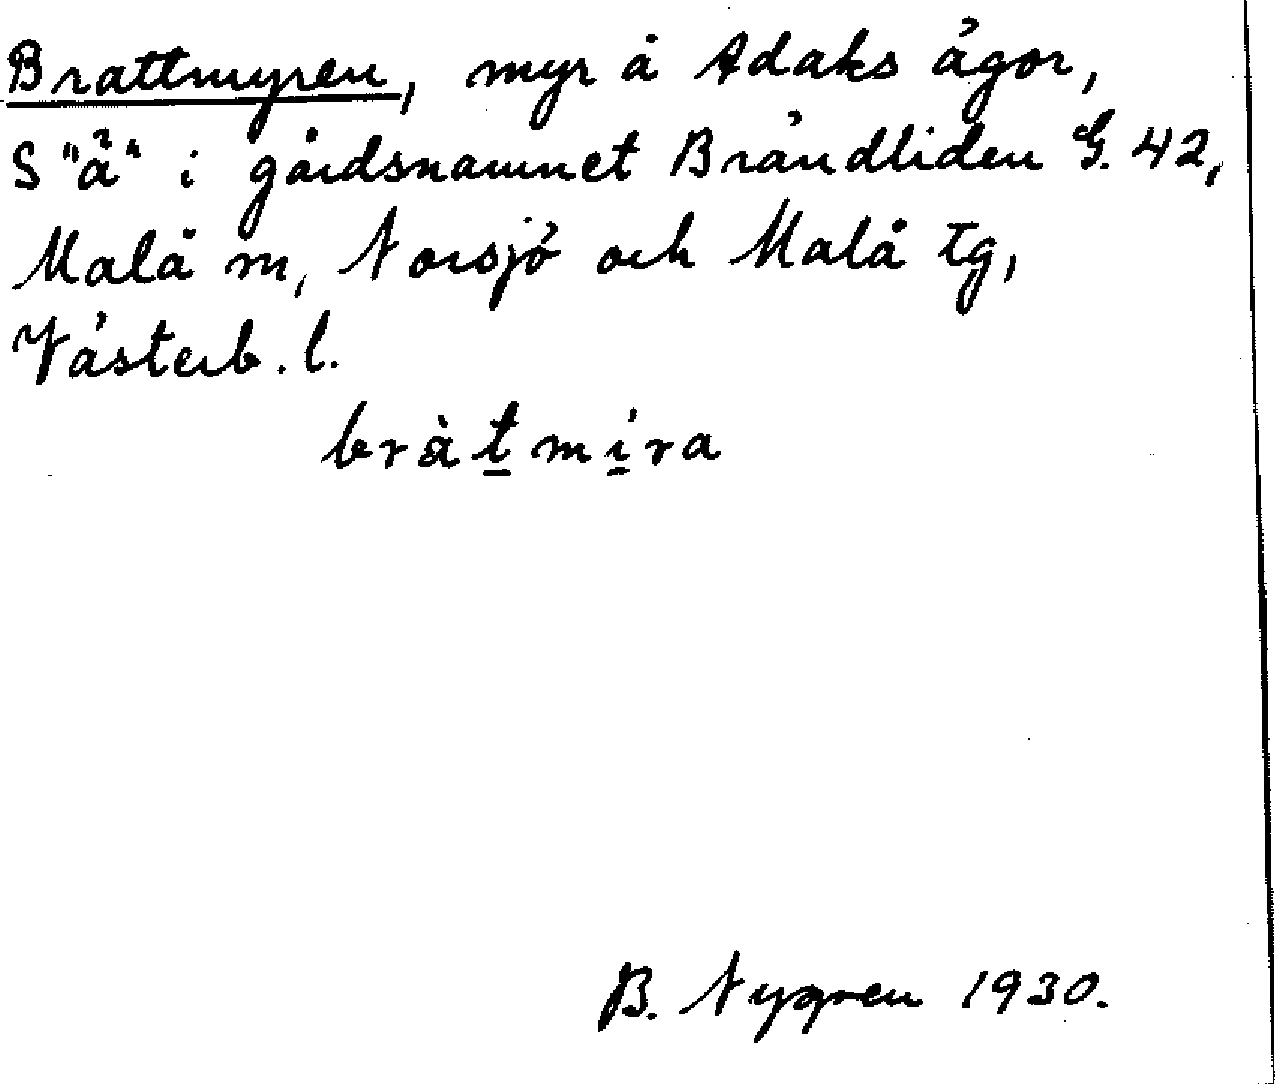 Brattmyren, myr å Adaks ägor,
S "ä" i gårdsnamnet Brändliden G. 42,
Malå sn, Norsjö och Malå tg,
Västerb. l.
bràt̲mí̲ra
B. Nygren 1930.